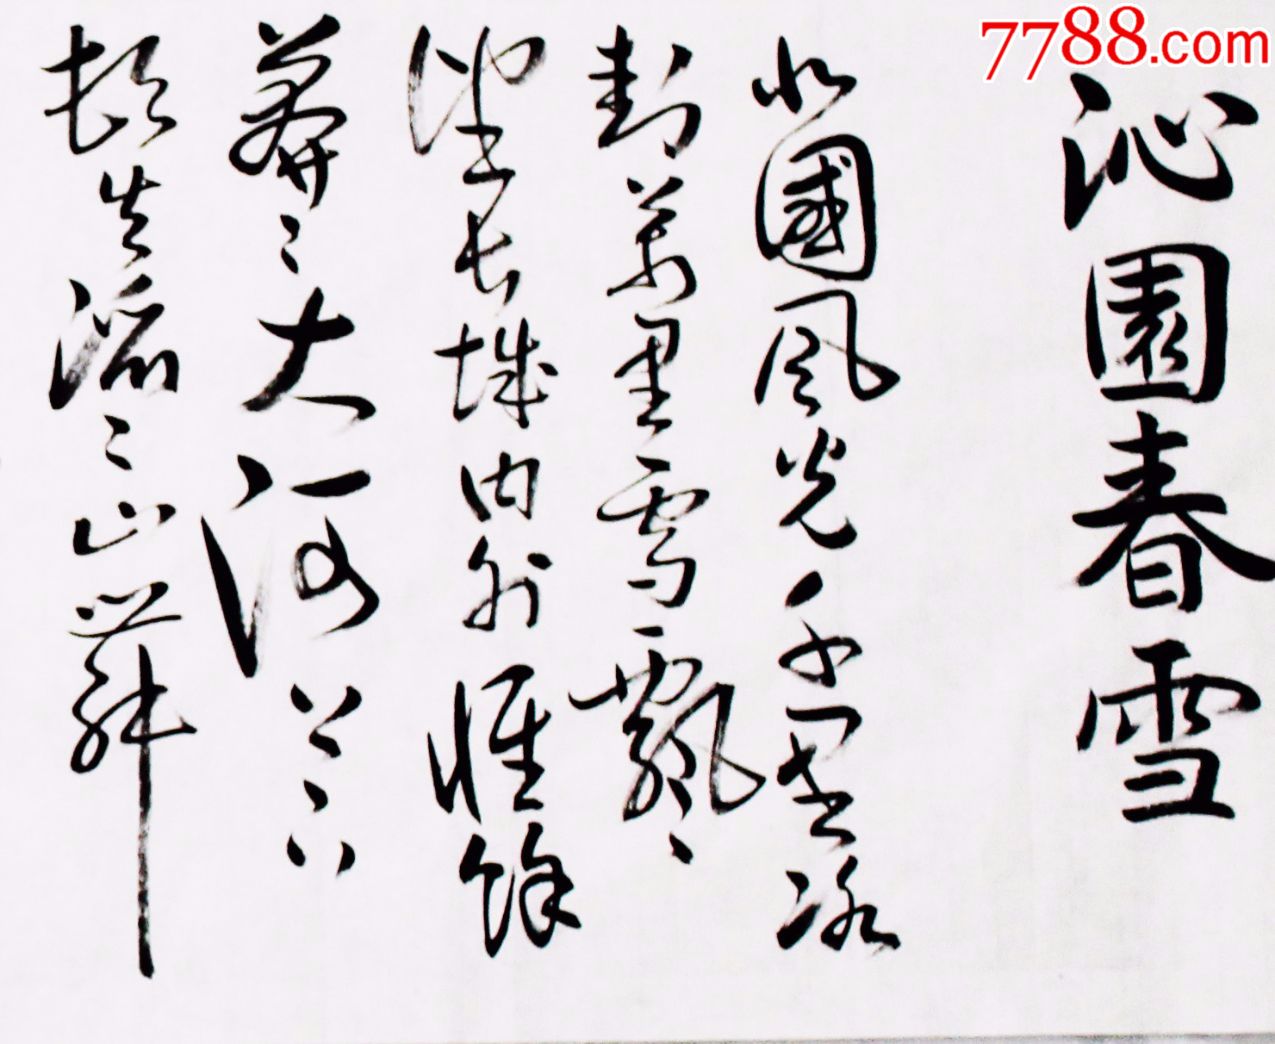 7788.com
沁園春雪
北國風光千里冰
封萬里雪飄
望長城内外惟餘
莽〻大河上下
頓失滔〻山舞